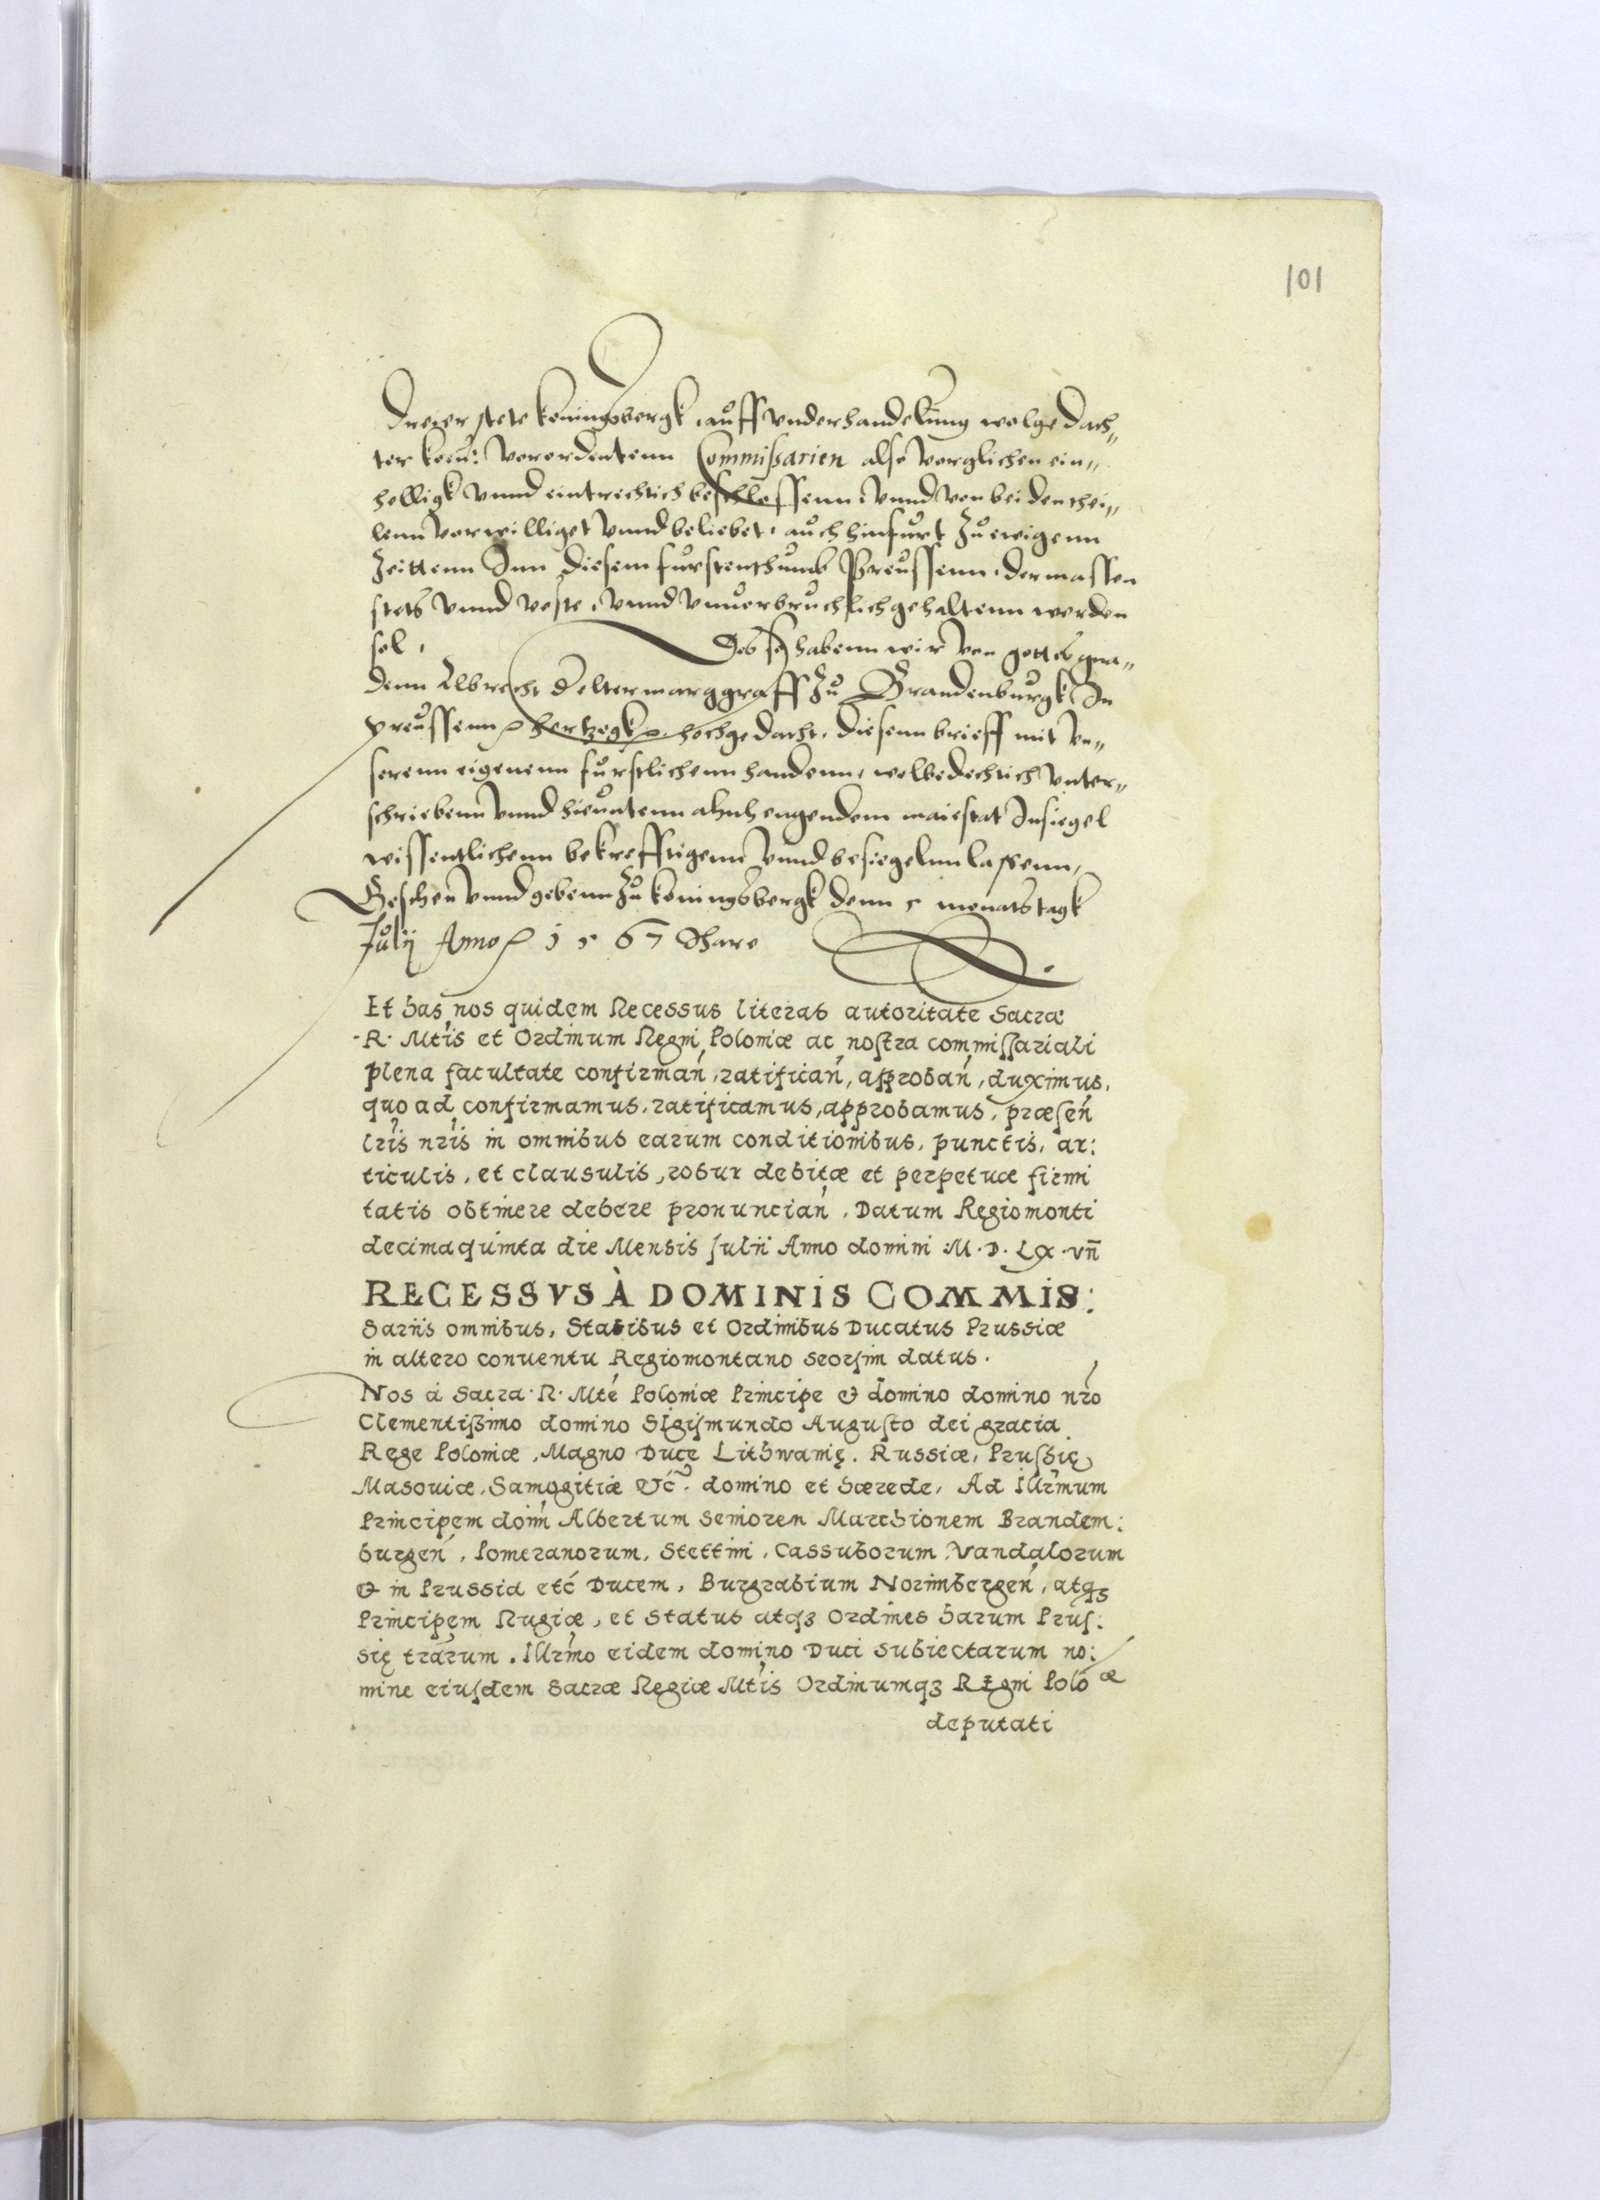 101
Dreier stete koningsbergk, auff vnderhandelung wolgedach„
ter kön: verordentenn Commißarien also verglichen ein„
helligk vnnd eintrechtich beschlossenn, vnnd von beiden thei„
lenn vorwilliget vnnd beliebet, auch hinfurt zu ewigenn
Zeittenn Inn diesem furstenthumb Preussenn, dermassen
stets vnnd veste, vnnd vnuerbruchlich gehaltenn werden
sol, Des habenn wir von gottes gna„
denn Albrecht d elter marggraff zu Brandenburgk In
preussenn hertzogk hochgedacht, diesenn brieff mit vn„
serenn eigenenn furstlichenn handenn, wolbedechtich vnter„
schriebenn vnnd hieuntenn ahnhengendem maiestat Insiegel
wissentlichenn bekrefftigenn vnnd besiegelnn lassenn,
Geschen vnnd gebenn zu koningsbergk denn 5 monatstagk
Julij Anno 1567 Ihare
Et has nos quidem Recessus literas autoritate Sacræ
·R· Mtis et Ordinum Regni Poloniæ ac nostra commissariali
plena facultate confirmań, ratificań, approbań, duximus,
quo ad confirmamus, ratificamus, approbamus, præseń
lris nris in omnibus earum conditionibus, punctis, ar:
ticulis, et clausulis, robur debitæ et perpetuæ firmi
tatis obtinere debere pronunciań, Datum Regiomonti
decimaquinta die Mensis Julii Anno domini M·D·LX·vii
RECESSVS À DOMINIS COMMIS:
Sariis omnibus, Statibus et Ordinibus Ducatus Prussiæ
in altero conuentu Regiomontano seorsim datus.
Nos á Sacra·R·Mte Poloniæ Principe & domino domino nro
Clementißimo domino Sigismundo Augusto dei gracia
Rege Poloniæ, Magno Duce Lithwanię. Russiæ, Prussię
Masouiæ, Samogitiæ &c. domino et hærede, Ad Illrmum
Principem domi Albertum Seniorem Marchionem Brandem:
burgeń, Pomeranorum, Stettini, Cassuborum, Vandalorum
& in Prussia etc Ducem, Burgrabium Norimbergeń, atqꝫ
Principem Rugiæ, et Status atqꝫ Ordines harum Prus:
się trarum. Illrmo eidem domino Duci subiectarum no:
mine eiusdem Sacræ Regiæ Mtis Ordinumqꝫ Regni Poloæ
deputati